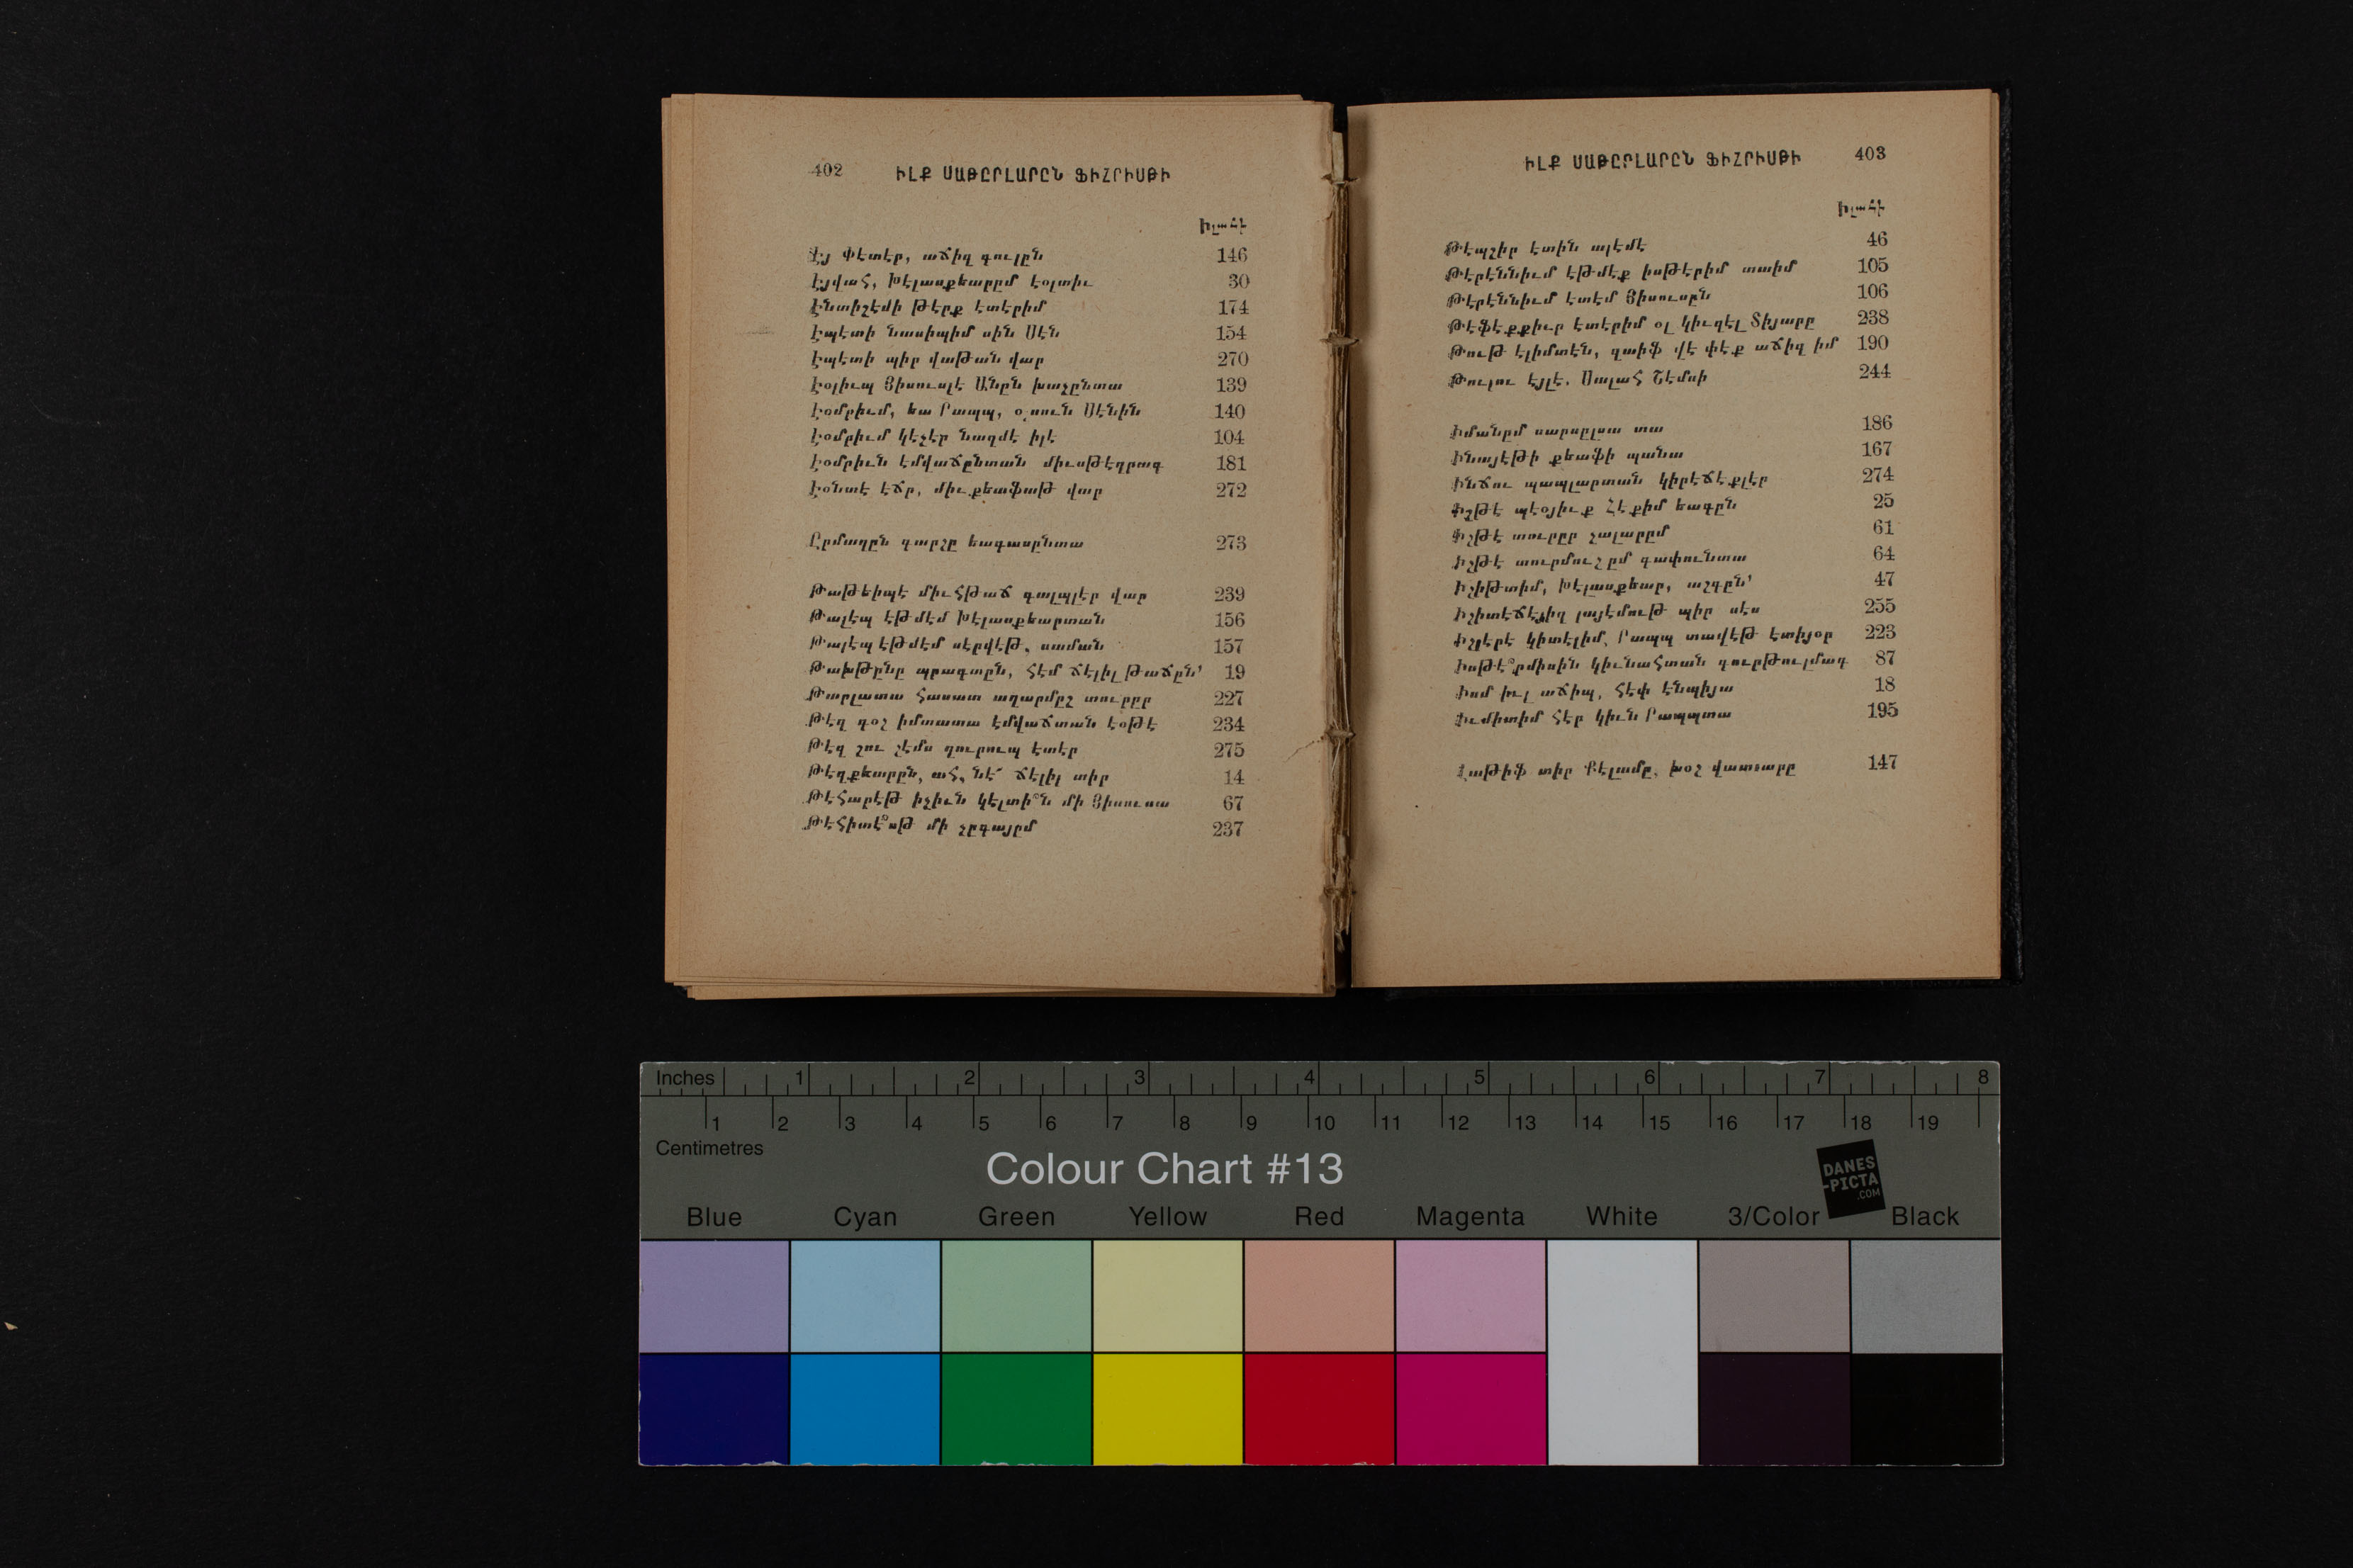 402 ԻԼՔ ՍԱԹԸՐԼԱՐԸՆ ՖԻՀՐԻՍԹԻ
Իլահէ
Էյ Փէտէր, աճիզ գուլըն 146
Էյվահ, Խէլասքեարըմ էօլտիւ 30
Էնտիշէմի թէրք էտէրիմ 174
Էպէտի նասիպիմ սին Սէն 154
Էպէտի պիր վաթան վար 270
Էօլիւպ Յիսուսլէ Անըն խաչընտա 139
Էօմրիւմ, եա Րապպ, օլսուն Սէնին 140
Էօմրիւմ կէչէր նաղմէ իլէ 104
Էօմրիւն էմվաճընտան միւսթէղրագ 181
Էօնտէ էճր, միւքեաֆաթ վար 272
Ըրմաղըն գարշը եագասընտա 273
Թաթեիպէ միւհթաճ գալպլէր վար 239
Թալէպ էթմէմ Խէլասքեարտան 156
Թալէպ էթմէմ սէրվէթ, սաման 157
Թախթընը պրագտըն, հէմ ճէլիլ թաճըն՝ 19
Թարլատա հասատ աղարմըշ տուրըր 227
Թէզ գօշ իմտատա էմվաճտան էօթէ 234
Թէզ շու շէմս ղուրուպ էտէր 275
Թէզքեարըն, ահ, նէ՜ ճէլիլ տիր 14
Թէհարէթ իչիւն կէլտի՞ն մի Յիսուսա 67
Թէհիտէ՞սթ մի չըգայըմ 237
ԻԼՔ ՍԱԹԸՐԼԱՐԸՆ ՖԻՀՐԻՍԹԻ 403
Իլահէ
Թէպշիր էտին ալէմէ 46
Թէրէննիւմ էթմէք իսթէրիմ տաիմ 105
Թէրէննիւմ էտէմ Յիսուսըն 106
Թէֆէքքիւր էտէրիմ օլ կիւզէլ Տիյարը 238
Թութ էլիմտէն, զաիֆ վէ փէք աճիզ իմ 190
Թուլու էյլէ, Սալահ Շէմսի 244
Իմանըմ սարսըլսա տա 186
Ինայէթի քեաֆի պանա 167
Ինճու պապլարտան կիրէճէքլէր 274
Իշթէ պէօյիւք Հէքիմ եագըն 25
Իշթէ տուրըր չալարըմ 61
Իշթէ տուրմուշըմ գափունտա 64
Իշիթտիմ, Խէլասքեար, աշգըն՝ 47
Իշիտէճէյիզ լայէմութ պիր սէս 255
Իշլէրէ կիտէլիմ, Րապպ տավէթ էտիյօր 223
Իսթէ՞րմիսին կիւնահտան գուրթուլմագ 87
Իսմ իւլ աճիպ, հէփ էնպիյա 18
Իւմիտիմ հէր կիւն Րապպտա 195
Լաթիֆ տիր Քէլամը, խօշ վատտարը 147
Inches 1 2 3 4 5 6 7 8
1 2 3 4 5 6 7 8 9 10 11 12 13 14 15 16 17 18 19
Centimetres
Colour Chart #13
DANES
-PICTA
.COM
Blue Cyan Green Yellow Red Magenta White 3/Color Black